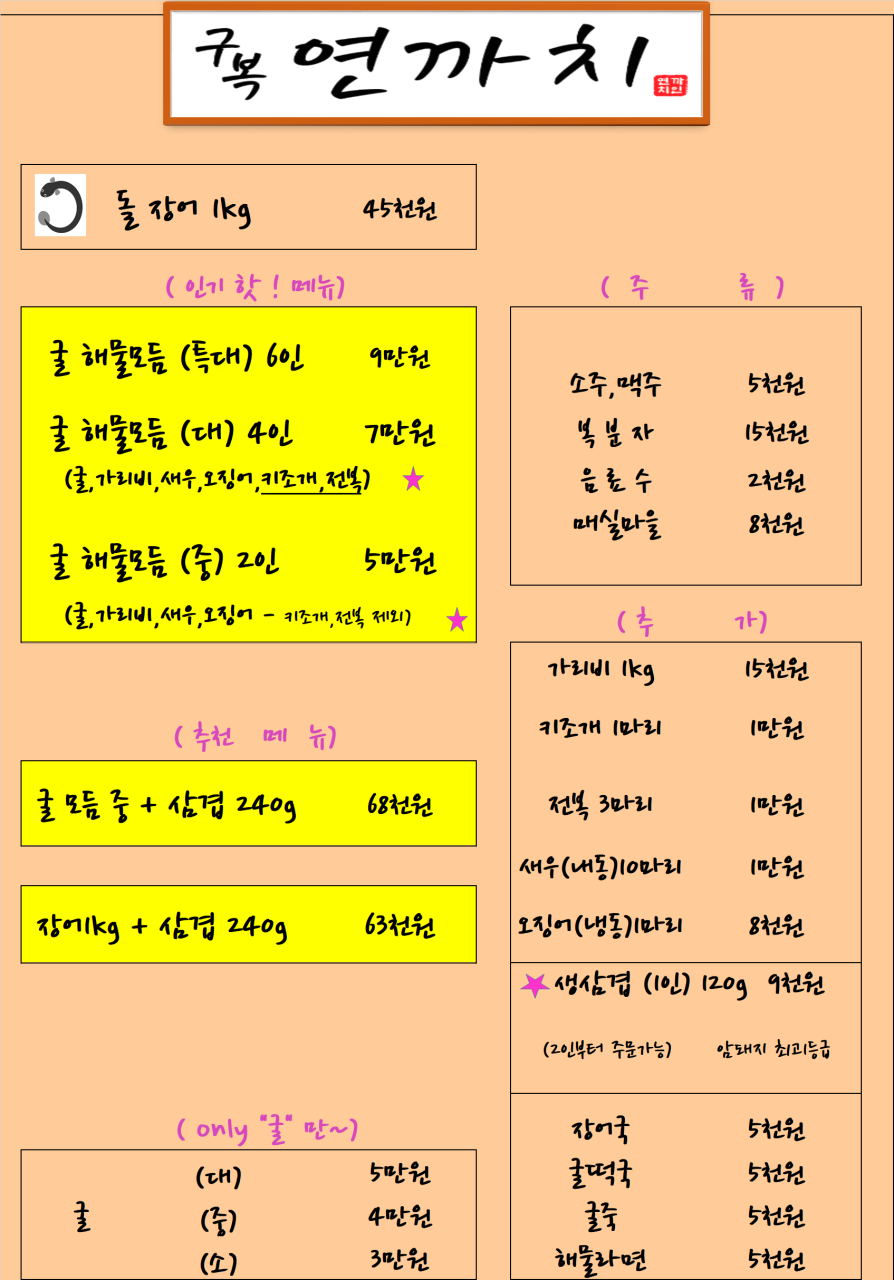 구복 연까치
연까
치인
돌 장어 1kg 45천원
( 인기 핫 ! 메뉴)
굴 해물모듬 (특대) 6인 9만원
굴 해물모듬 (대) 4인 7만원
(굴,가리비,새우,오징어,키조개,전복)
굴 해물모듬 (중) 2인 5만원
(굴,가리비,새우,오징어 - 키조개,전복 제외)
( 추천 메 뉴)
굴 모듬 중 + 삼겹 240g 68천원
장어1kg + 삼겹 240g 63천원
( only "굴" 만~)
굴
(대) 5만원
(중) 4만원
(소) 3만원
( 주 류 )
소주,맥주 5천원
복 분 자 15천원
음 료 수 2천원
매실마을 8천원
( 추 가)
가리비 1kg 15천원
키조개 1마리 1만원
전복 3마리 1만원
새우(내동)10마리 1만원
오징어(냉동)1마리 8천원
생삼겹 (1인) 120g 9천원
(2인부터 주문가능) 암돼지 최고등급
장어국 5천원
굴떡국 5천원
굴죽 5천원
해물라면 5천원